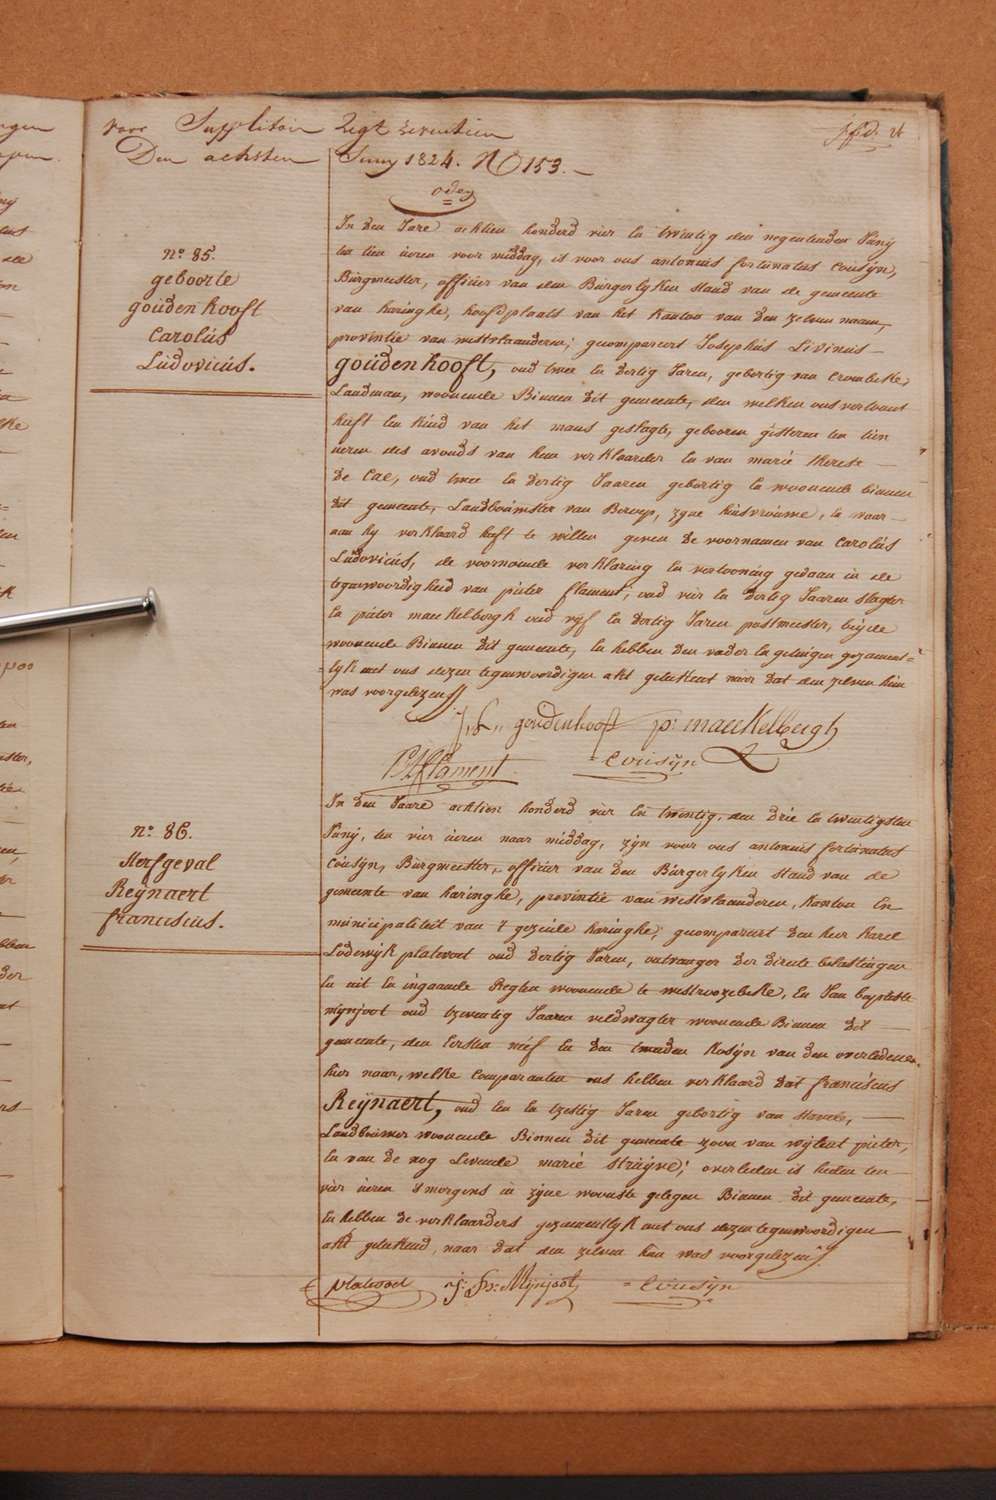 voor Suppletoir Zegt seventien
Den achsten Juny 1824. No 153.
n.° 85.
geboorte
goudenhooft
Carolús
Lúdovicús.
In den Jare achtien honderd vier en twintig den negentienden Júny
ten tien úeren voor middag, is voor ons antonius fortunatus Coúsyn,
Búrgmeester, officier van den Búrgerlyken stand van de gemeente
van haringhe, hoofdplaats van het Kanton van den zelven naam,
provintie van westvlaanderen, gecompareert Josephús Livinus
goúdenhooft, oud twee en dertig Jaren, gebortig van Crombeke,
Landman, woonende Binnen dit gemeente, den welken ons vertoont
heeft een kind van het mans geslagte, gebooren gisteren ten tien
úeren des avonds van hem verklaarder en van marie therese
De Cae, oud twee en dertig Jaaren gebortig en woonende binnen
dit gemeente, Landboúwster van Beroep, zyne húisvroúwe, en waar
aan hy verklaard heeft te willen geven de voornamen van Carolús
Lúdovicús, de voornoemde verklaring en vertooning gedaan in de
tegenwoordigheid van pieter flament, oud vier en dertig Jaaren slagter
en pieter maeckelbergh oud vyf en dertig Jaren postmeester, beyde
woonende Binnen dit gemeente, en hebben den vader en getuigen gezament=
=lyk met ons dezen tegenwoordigen akt geteekent naar dat den zelven hún
was voorgelezen
J. L. goudenhooft p: maeckelbergh
P flament Coúsyn
n.° 86.
sterfgeval
Reÿnaert
franciscus.
In den Jaare achtien honderd vier en twintig, den drie en twintigsten
Júnÿ, ten vier úeren naar middag, zÿn voor ons antonius fortunatus
Coúsyn, Búrgmeester, officier van den Búrgerlyken stand van de
gemeente van haringhe, provintie van westvlaanderen, Kanton en
municipaliteit van 't gezeide haringhe, gecompareert den heer Karel
Lodewÿk platevoet oud dertig Jaren, ontvanger der directe belastingen
en uit en ingaande Regten woonende te westroozebeke, en Jan baptiste
mÿnjoot oud tzeventig Jaaren veldwagter woonende Binnen dit
gemeente, den Eersten neef en den tweeden Kosÿn van den overledenen
hier naar, welke comparanten ons hebben verklaard dat franciscus
Reÿnaert, oud een en tzestig Jaren gebortig van stavele,
Landboúwer woonende Binnen dit gemeente zoon van wÿlent pieter,
en van de nog Levende marie Strúÿve, overleden is heden ten
vier úeren s'morgens in zÿne woonste gelegen Binnen dit gemeente,
En hebben de verklaarders gezamentlÿk met ons dezen tegenwoordigen
akt geteekend naar dat den zelven hún was voorgelezen
platevoet j: b: Mÿnjoot Coúsyn